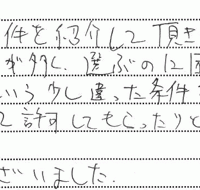 件を紹介して頂き
が多く、選ぶのに
いう少し違った条件
て許してもらったりと
ざいました.